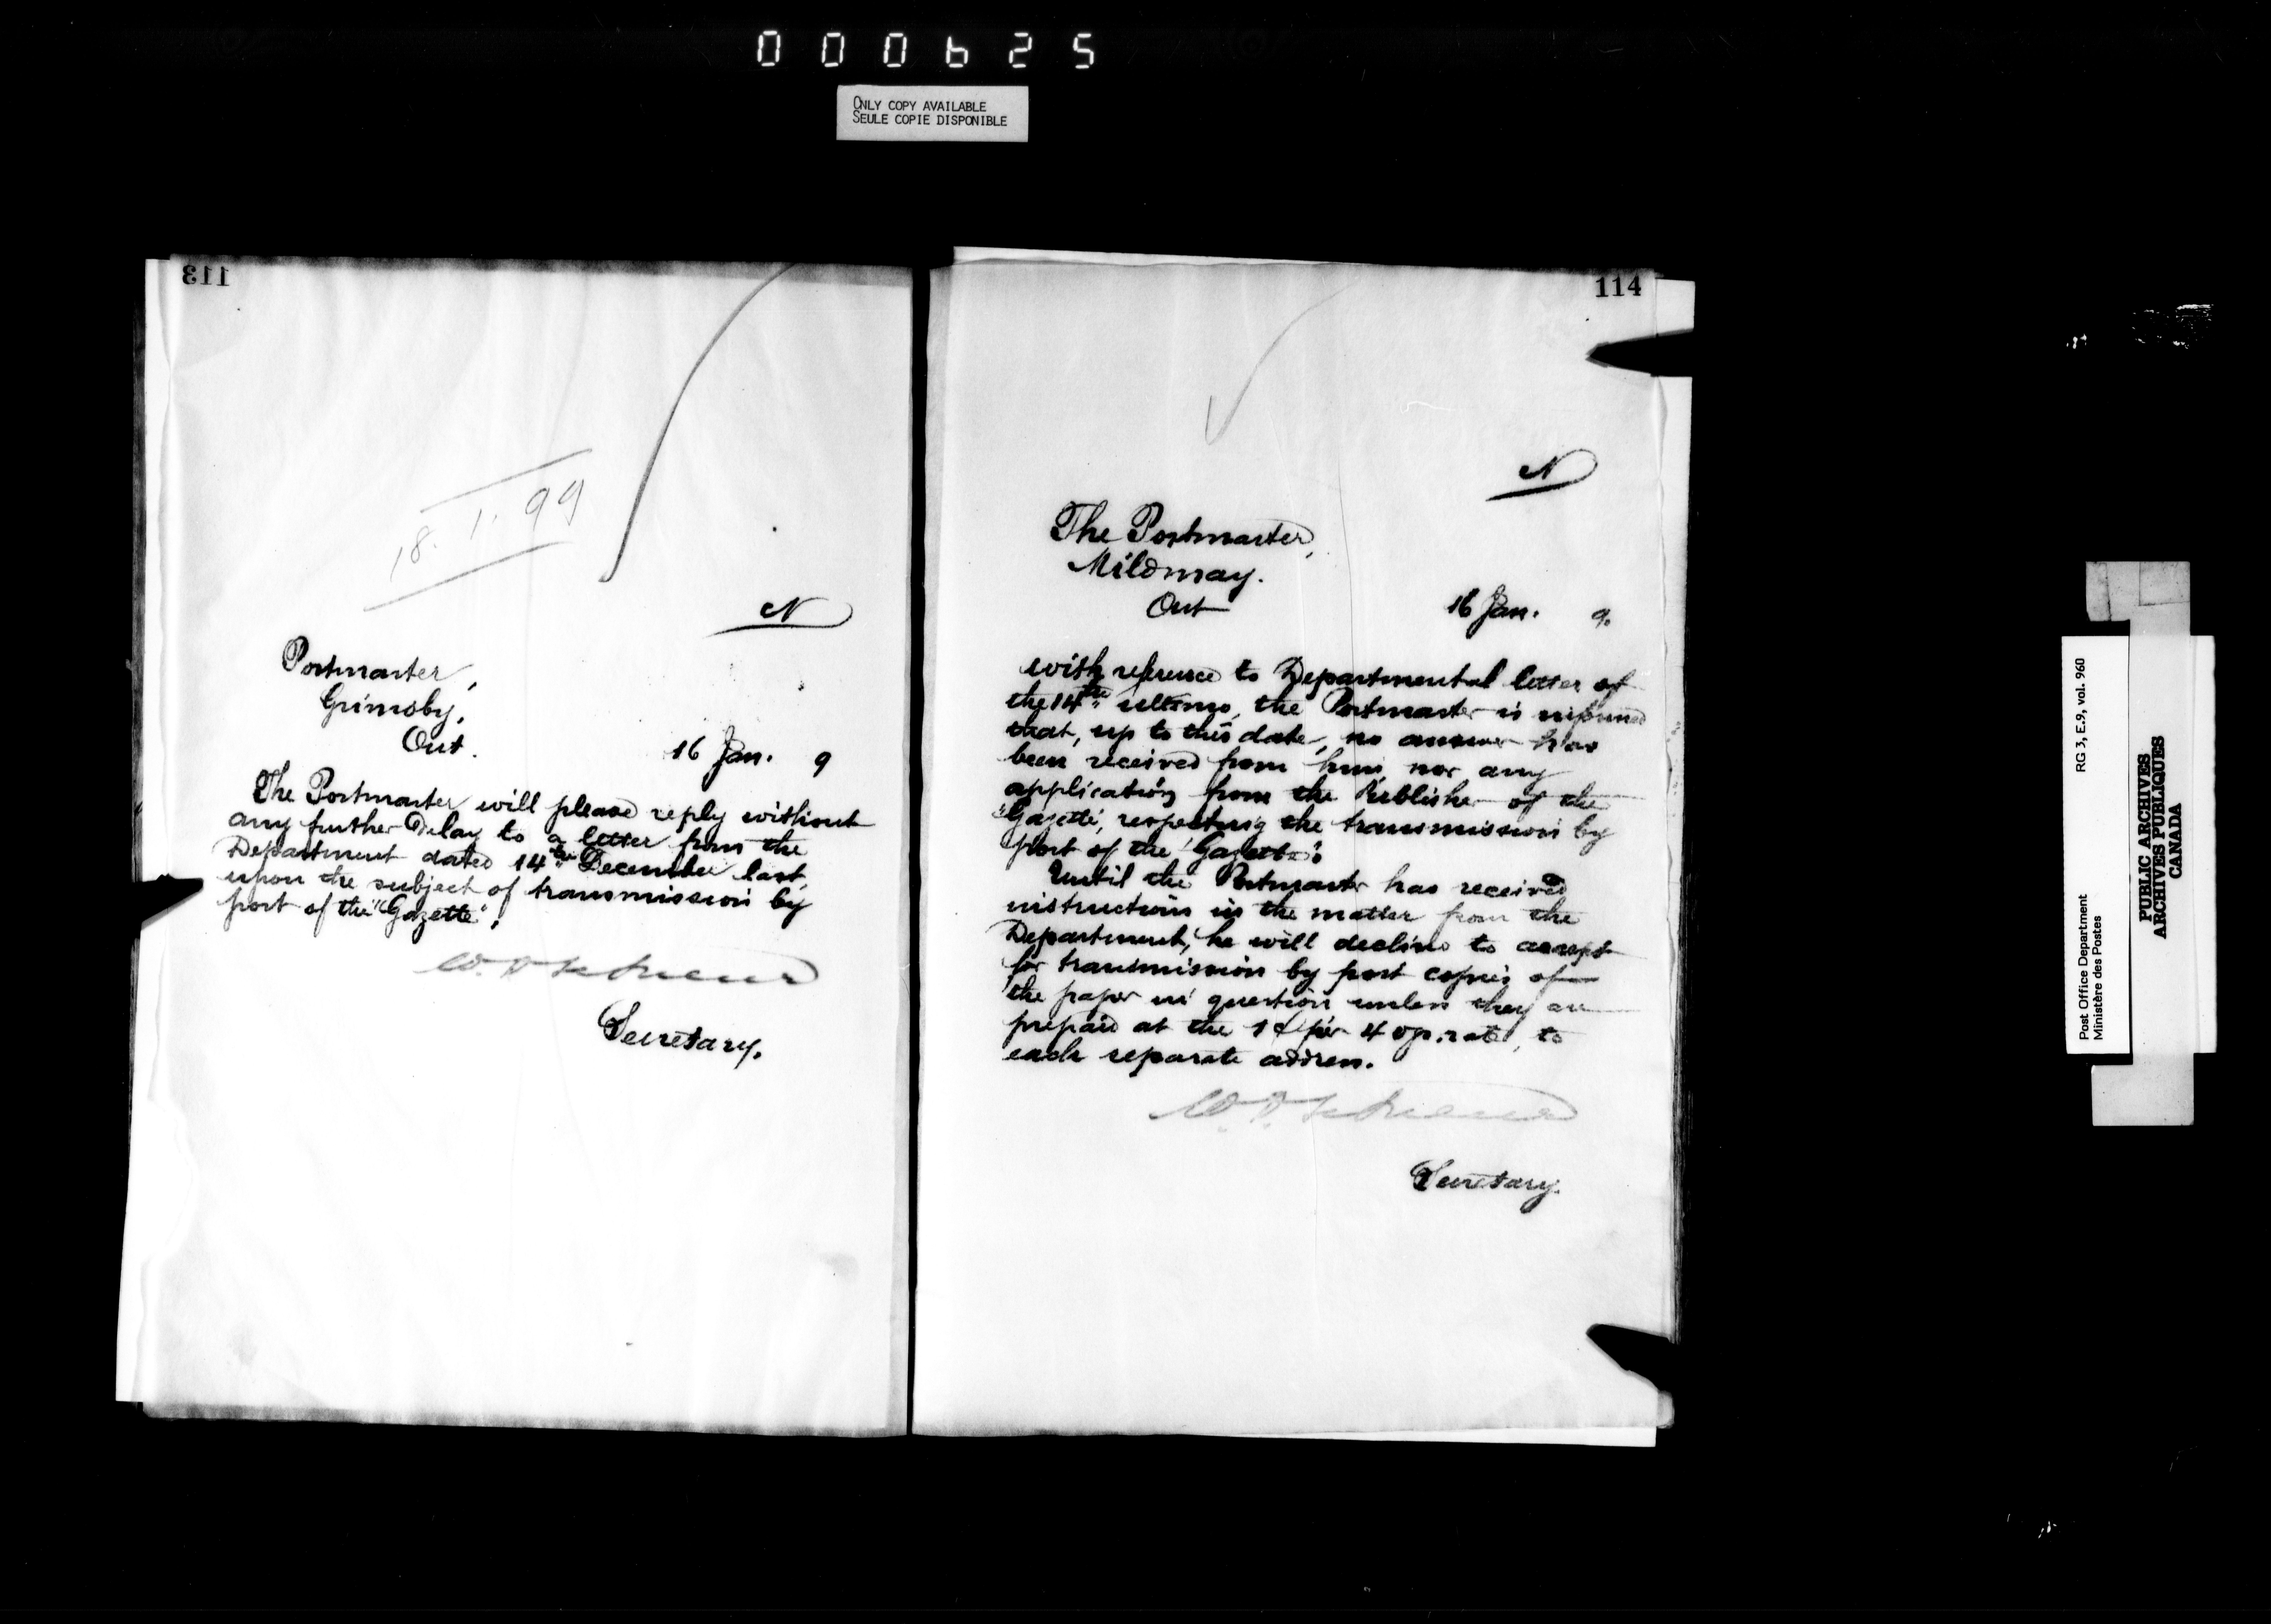 000625
ONLY COPY AVAILABLE
SEULE COPIE DISPONIBLE
113
18. 1. 99
N
Postmaster,
Grimsby,
Ont.
16 Jan. 9
The Postmaster will please reply without
any further delay to a letter from the
Department dated 14th December last,
upon the subject of transmission by
post of the "Gazette".
Secretary.
114
N
The Postmaster,
Mildmay.
Ont
16 Jan. 9.
With reference to Departmental letter of
the 14th ultimo, the Postmaster is informed
that, up to this date, no answer has
been received from him, nor any
application from the Publisher of the
"Gazette", respecting the transmission by
post of the "Gazette".
Until the Postmaster has received
instructions in the matter from the
Department, he will decline to accept
for transmission by post copies of
the paper in question unless they are
prepaid at the 1¢ per 4 oz. rate, to
each separate address.
Secretary.
Post Office Department
Ministère des Postes
RG 3, E.9, vol. 960
PUBLIC ARCHIVES
ARCHIVES PUBLIQUES
CANADA